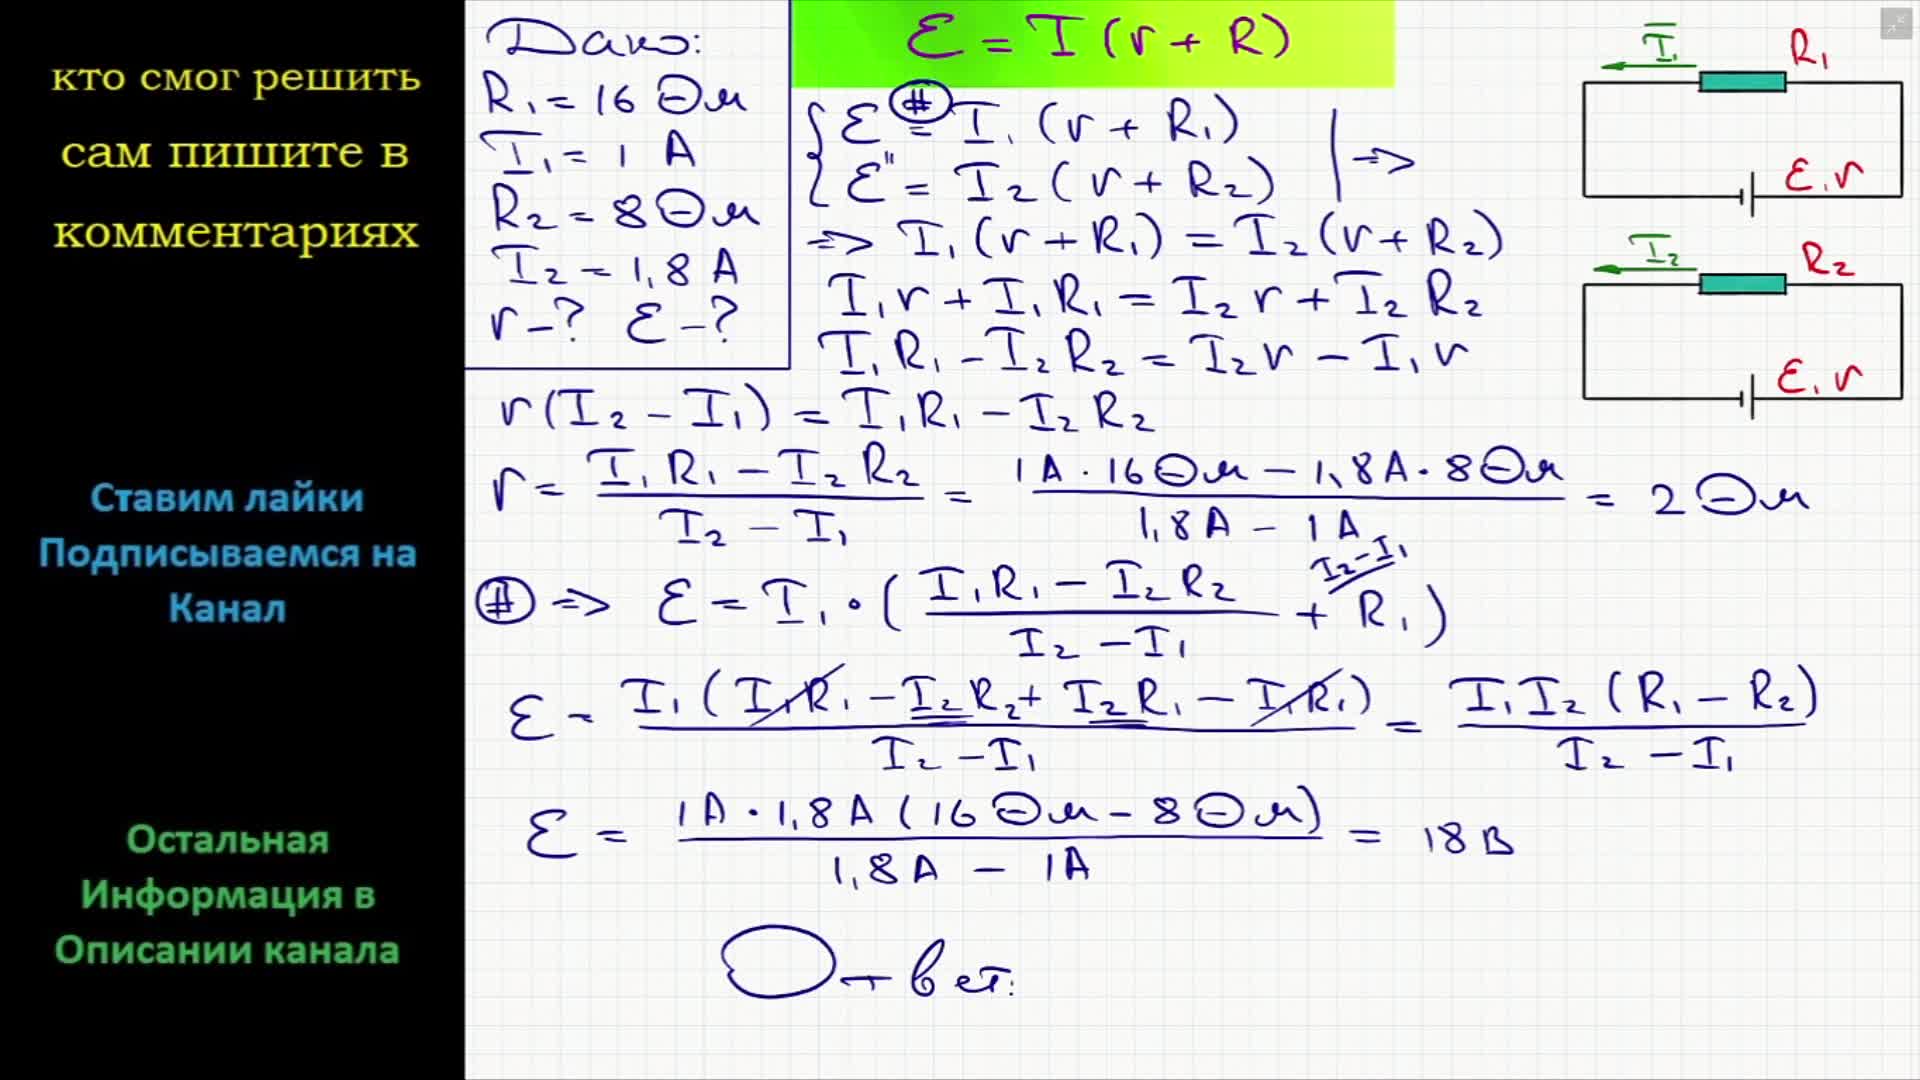 кто смог решить
сам пишите в
комментариях
Ставим лайки
Подписываемся на
Канал
Остальная
Информация в
Описании канала
Дано:
R₁ = 16 Ом
I₁ = 1 А
R₂ = 8 Ом
I₂ = 1,8 А
r - ? ℰ - ?
ℰ = I (r + R)
ℰ = I₁ (r + R₁)
#
ℰ = I₂ (r + R₂) | =>
=> I₁ (r + R₁) = I₂ (r + R₂)
I₁ r + I₁ R₁ = I₂ r + I₂ R₂
I₁ R₁ - I₂ R₂ = I₂ r - I₁ r
r (I₂ - I₁) = I₁ R₁ - I₂ R₂
r = (I₁ R₁ - I₂ R₂) / (I₂ - I₁) = (1 А · 16 Ом - 1,8 А · 8 Ом) / (1,8 А - 1 А) = 2 Ом
# => ℰ = I₁ · ( (I₁ R₁ - I₂ R₂) / (I₂ - I₁) + R₁ )
I₂ - I₁
ℰ = I₁ ( I₁ R₁ - I₂ R₂ + I₂ R₁ - I₁ R₁ ) / (I₂ - I₁) = I₁ I₂ (R₁ - R₂) / (I₂ - I₁)
ℰ = 1 А · 1,8 А (16 Ом - 8 Ом) / (1,8 А - 1 А) = 18 В
Ответ:
I₁
R₁
ℰ, r
I₂
R₂
ℰ, r